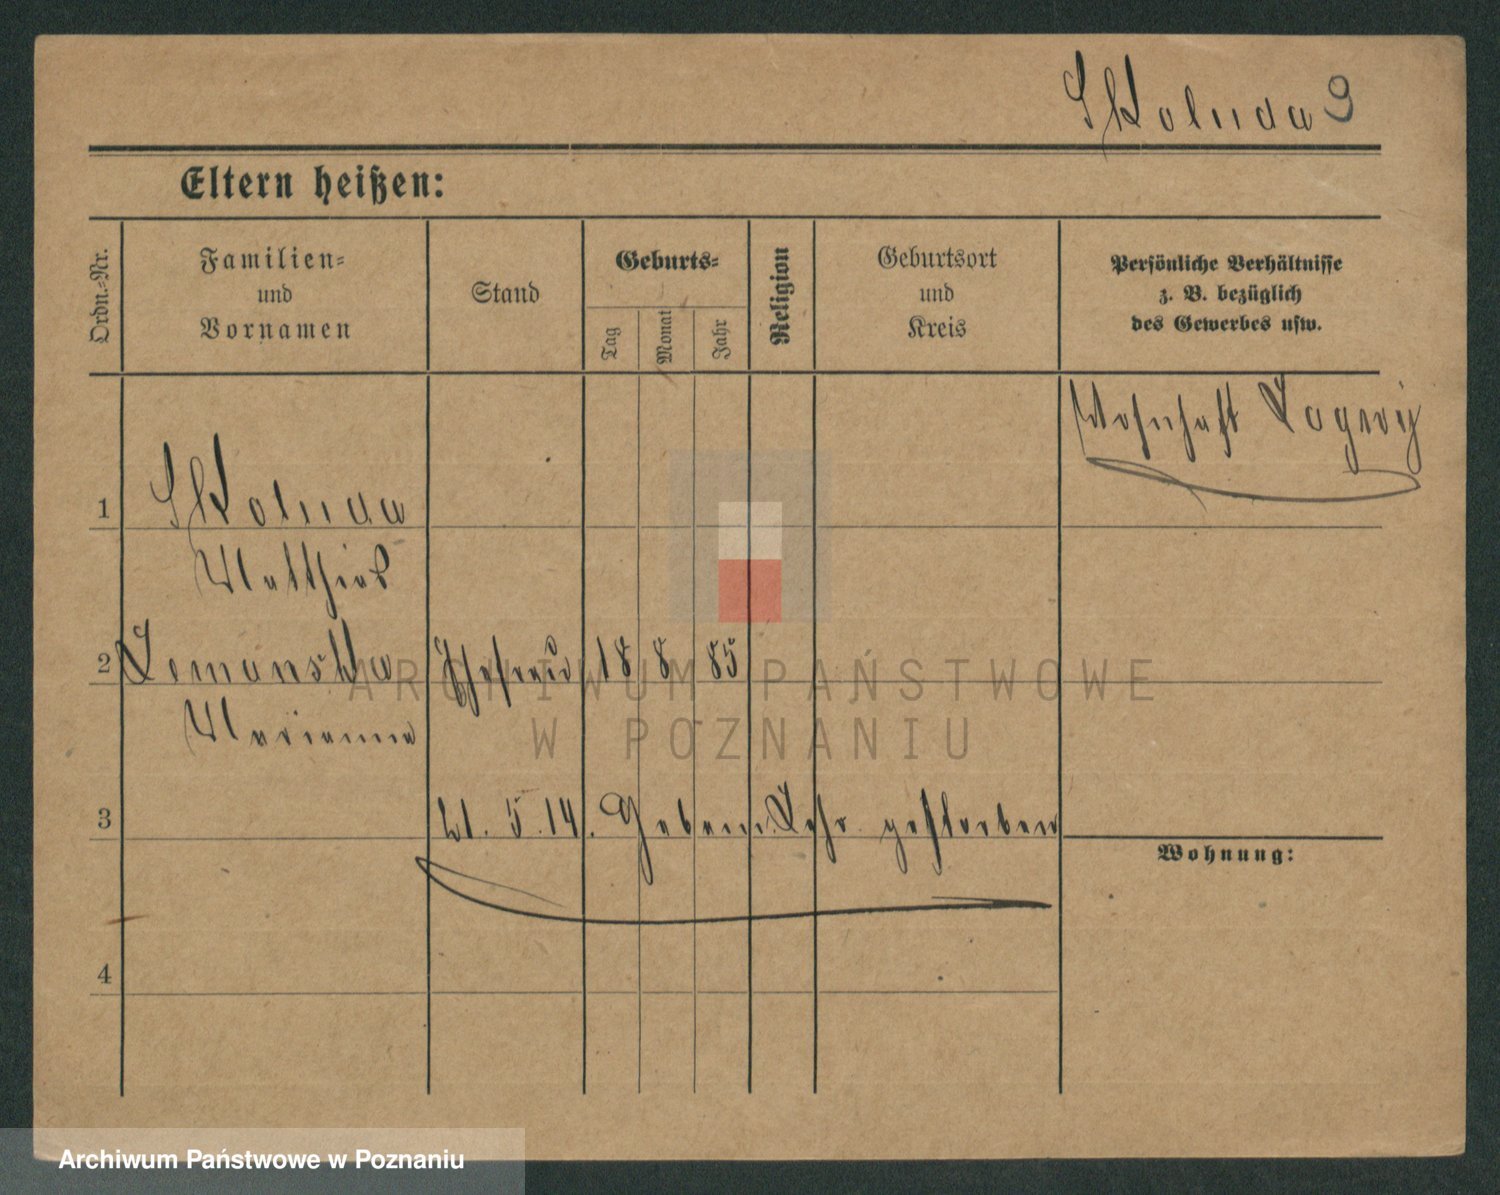 Skoluda 9
Eltern heißen:
Ordn.-Nr.
Familien-
und
Vornamen
Stand
Geburts-
Tag
Monat
Jahr
Religion
Geburtsort
und
Kreis
Persönliche Verhältnisse
z. B. bezüglich
des Gewerbes usw.
Wohnhaft
1 Skoluda
Matthias
2 Lemanska Ehefrau 18 8 85
Marianna
ARCHIWUM PAŃSTWOWE
W POZNANIU
3 21. 5. 14. gestorben
Wohnung:
4
Archiwum Państwowe w Poznaniu